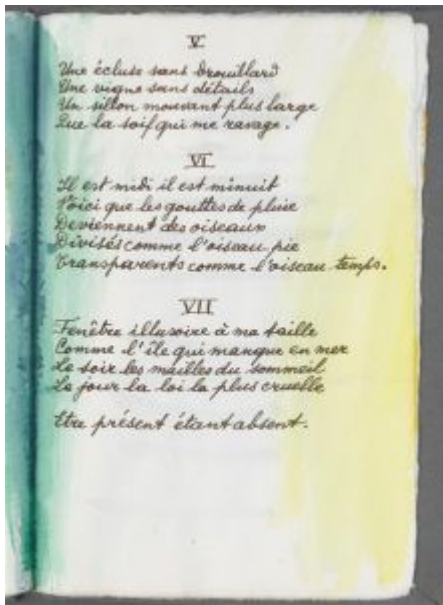 V
Une écluse sans brouillard
Une vigne sans détails
Un sillon mouvant plus large
Que la soif qui me ravage.
VI
Il est midi il est minuit
Voici que les gouttes de pluie
Deviennent des oiseaux
Divisés comme l'oiseau pie
Transparents comme l'oiseau temps.
VII
Fenêtre illusoire à ma taille
Comme l'île qui manque en mer
Le soir les mailles du sommeil
Le jour la loi la plus cruelle
Etre présent étant absent.